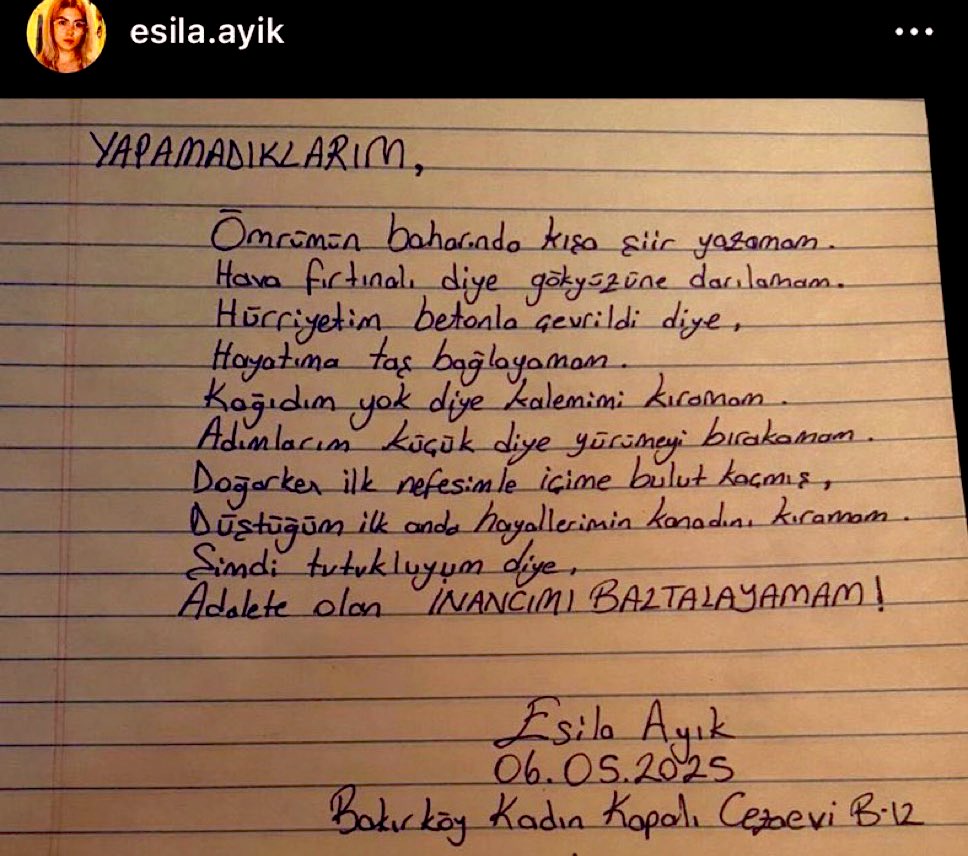 esila.ayik
YAPAMADIKLARIM,
Ömrümün baharında kışa şiir yazamam.
Hava fırtınalı diye gökyüzüne darılamam.
Hürriyetim betonla çevrildi diye,
Hayatıma taş bağlayamam.
Kağıdım yok diye kalemimi kıramam.
Adımlarım küçük diye yürümeyi bırakamam.
Doğarken ilk nefesimle içime bulut kaçmış,
Düştüğüm ilk anda hayallerimin kanadını kıramam.
Şimdi tutukluyum diye,
Adalete olan İNANCIMI BALTALAYAMAM!
Esila Ayık
06.05.2025
Bakırköy Kadın Kapalı Cezaevi B-12